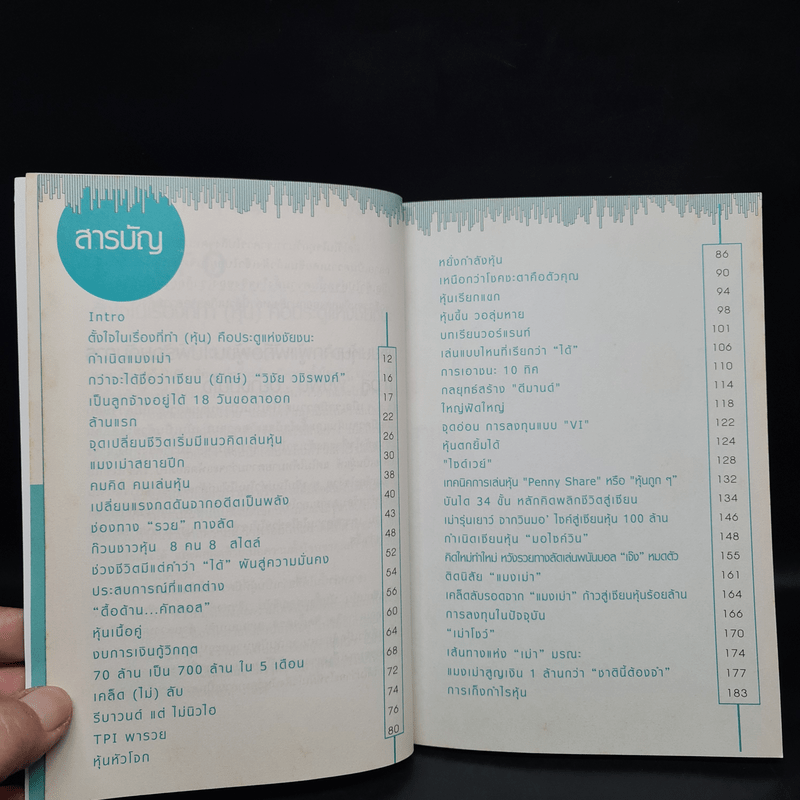 สารบัญ
Intro
ตั้งใจในเรื่องที่ทำ (หุ้น) คือประตูแห่งชัยชนะ
กำเนิดแมงเม่า 12
กว่าจะได้ชื่อว่าเซียน (ยักษ์) “วิชัย วชิรพงศ์” 16
เป็นลูกจ้างอยู่ได้ 18 วันขอลาออก 17
ล้านแรก 22
จุดเปลี่ยนชีวิตเริ่มมีแนวคิดเล่นหุ้น 26
แมงเม่าสยายปีก 30
คมคิด คนเล่นหุ้น 38
เปลี่ยนแรงกดดันจากอดีตเป็นพลัง 40
ช่องทาง “รวย” ทางลัด 43
ก๊วนชาวหุ้น 8 คน 8 สไตล์ 48
ช่วงชีวิตมีแต่คำว่า “ได้” ผันสู่ความมั่นคง 52
ประสบการณ์ที่แตกต่าง 54
“ดื้อด้าน...คัทลอส” 56
หุ้นเนื้อคู่ 60
งบการเงินกู้วิกฤต 64
70 ล้าน เป็น 700 ล้าน ใน 5 เดือน 68
เคล็ด (ไม่) ลับ 72
รีบาวนด์ แต่ ไม่นิวไฮ 74
TPI พารวย 76
หุ้นหัวโจก 80
หยั่งกำลังหุ้น 86
เหนือกว่าโชคชะตาคือตัวคุณ 90
หุ้นเรียกแขก 94
หุ้นขึ้น วอลุ่มหาย 98
บทเรียนวอร์แรนท์ 101
เล่นแบบไหนที่เรียกว่า “ได้” 106
การเอาชนะ 10 ทิศ 110
กลยุทธ์สร้าง "ดีมานด์" 114
ใหญ่ฟัดใหญ่ 118
จุดอ่อน การลงทุนแบบ "VI" 122
หุ้นตกยิ้มได้ 124
"ไซด์เวย์" 128
เทคนิคการเล่นหุ้น "Penny Share" หรือ "หุ้นถูก ๆ" 132
บันได 34 ขั้น หลักคิดพลิกชีวิตสู่เซียน 134
เม่ารุ่นเยาว์ จากวินมอ' ไซค์สู่เซียนหุ้น 100 ล้าน 146
กำเนิดเซียนหุ้น “มอไซค์วิน” 148
คิดใหม่ทำใหม่ หวังรวยทางลัดเล่นพนันบอล “เจ๊ง” หมดตัว 155
ติดนิสัย “แมงเม่า” 161
เคล็ดลับรอดจาก “แมงเม่า” ก้าวสู่เซียนหุ้นร้อยล้าน 164
การลงทุนในปัจจุบัน 166
“เม่าโชว์” 170
เส้นทางแห่ง “เม่า” มรณะ 174
แมงเม่าสูญเงิน 1 ล้านกว่า “ชาตินี้ต้องจำ” 177
การเก็งกำไรหุ้น 183